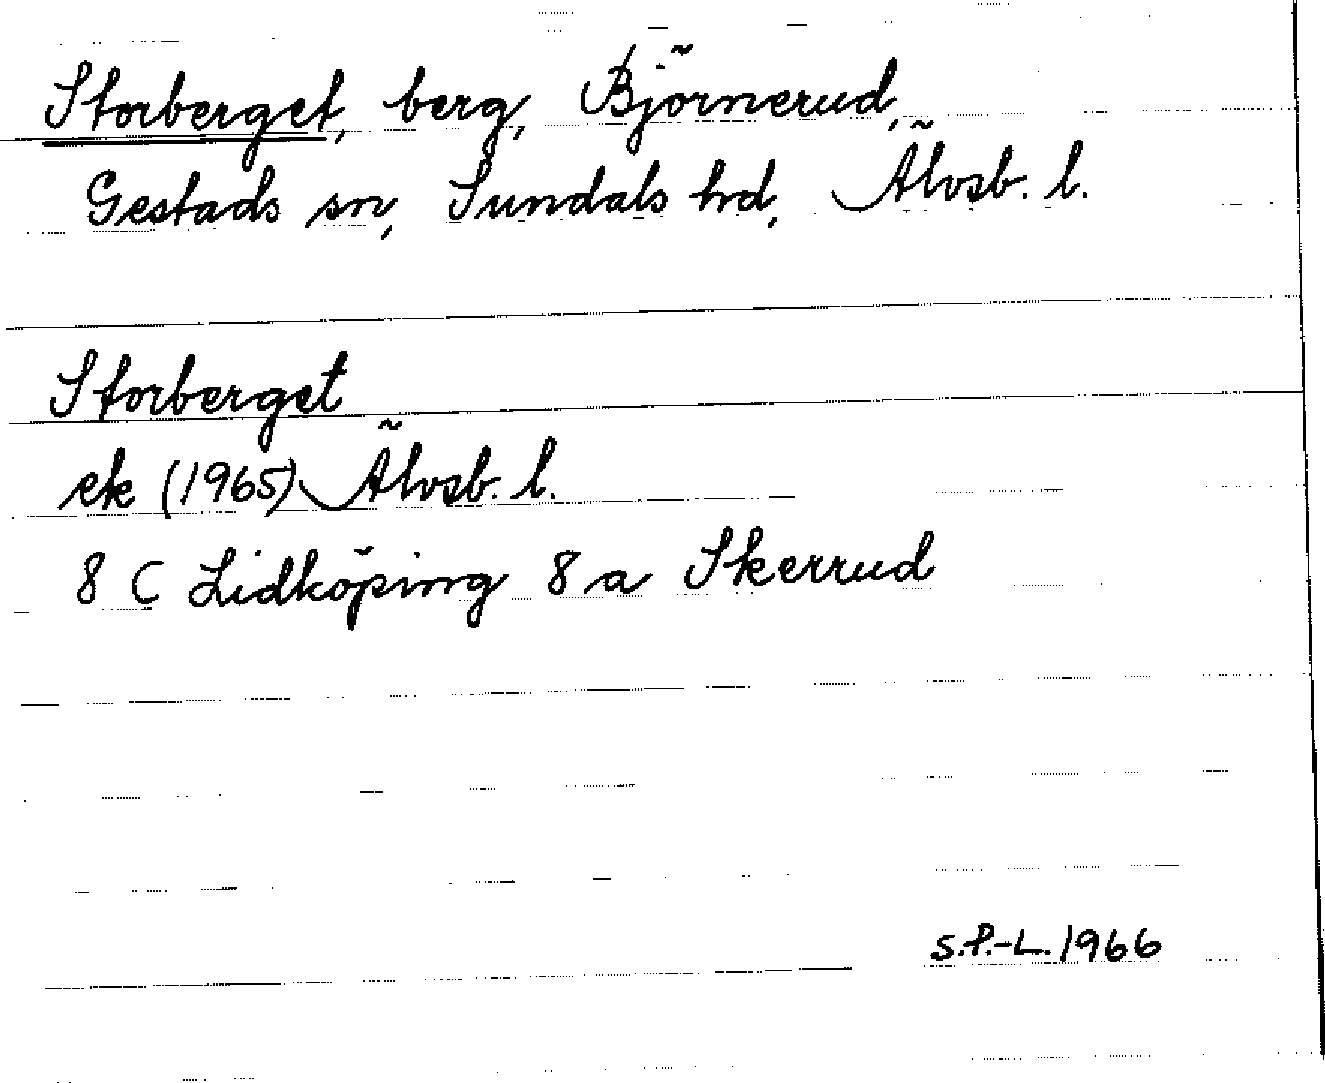 Storberget, berg, Björnerud,
Gestads sn, Sundals hd, Älvsb. l.
Storberget
ek (1965) Älvsb. l.
8 C Lidköping 8 a Skerrud
S.P.-L. 1966